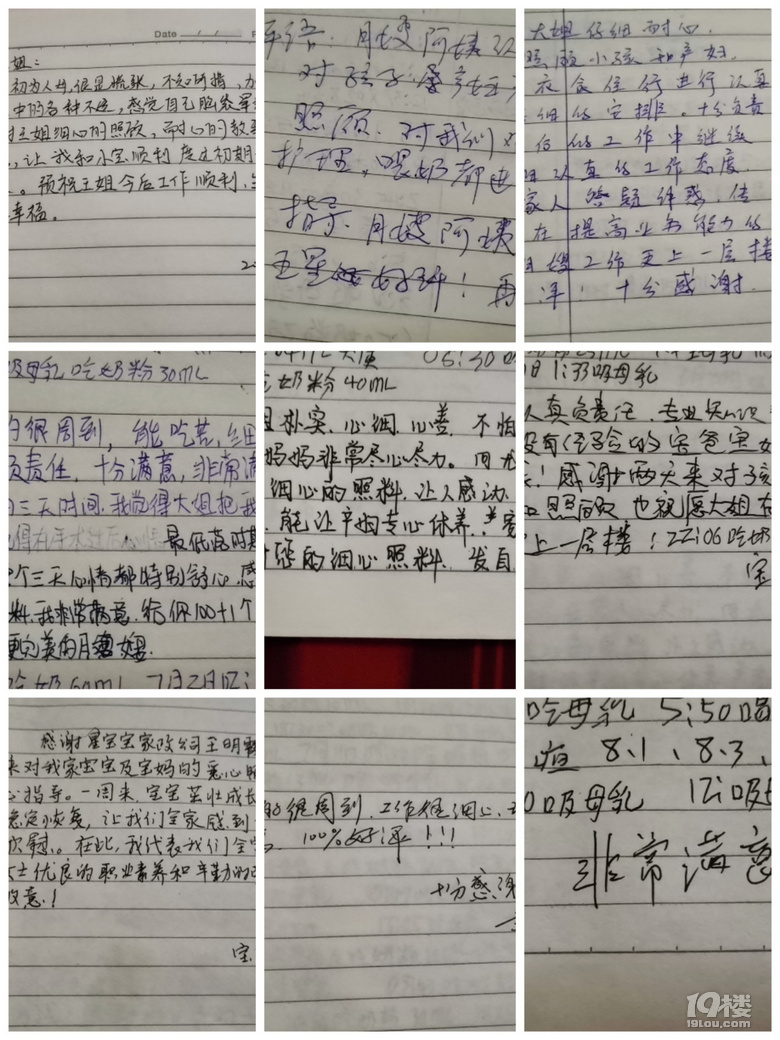 Date
姐：
初为人母,很是慌张,不知所措,
中的各种不适,感觉自己脑袋
王姐细心的照顾,耐心的教
,让我和小宝顺利度过初期
。预祝王姐今后工作顺利,
幸福。
评语:月嫂阿姨
对孩子
照顾.对我们
护理,喂奶都
指导.月嫂阿姨
五星好评!再
大姐仔细耐心.
照顾小孩和产妇.
衣食住行进行认真
细的安排。十分负责
的工作中继续
认真的工作态度.
家人答疑解惑,
在提高业务能力的
嫂工作更上一层楼
洋!十分感谢.
吸母乳吃奶粉30ML
的很周到,能吃苦,细
负责任,十分满意,非常满
三天时间.我觉得大姐把我
最低落时期
个三天心情都特别舒心,感
料.我非常满意.给你100+1个
更完美的月嫂.
吃奶60ML 7月2日12:
06:30
奶粉40ML
朴实.心细.心善.不怕
妈妈非常尽心尽力。
细心的照料.让人感动.
.能让产妇专心休养.
的细心照料.发自
日1:33吸母乳
认真负责任.专业知识
没有经验的宝爸宝妈
!感谢两天来对孩
照顾 也祝愿大姐在
上一层楼!22:06吃奶
宝
感谢星宝宝家政公司王明
来对我家宝宝及宝妈的悉心照
心指导。一周来,宝宝茁壮成长
稳定恢复,让我们全家感到
欣慰。在此,我代表我们全
女士优良的职业素养和辛勤的
敬意!
宝
的很周到.工作很细心.
100%好评!!!
十分感谢
吃母乳 5:50喝
疸 8.1、8.3、
吸母乳 12:吸
非常满意
19楼
19lou.com